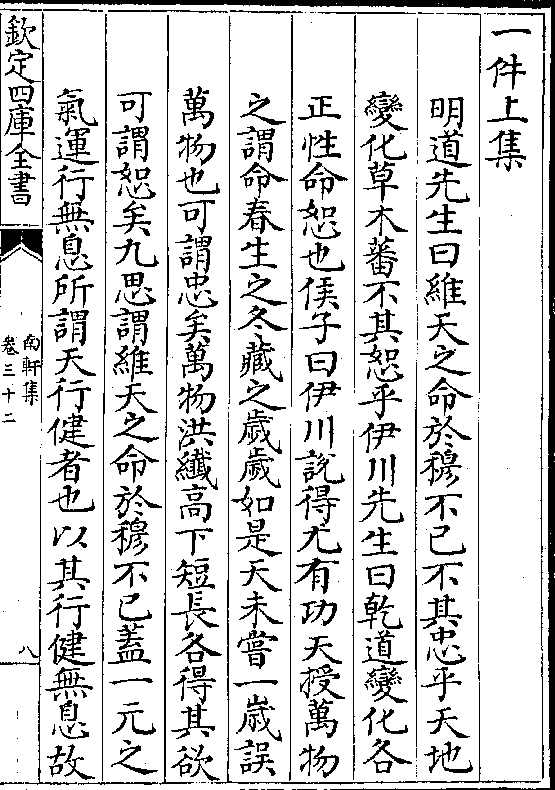 一件上集
明道先生曰維天之命於穆不已不其忠乎天地
變化草木蕃不其恕乎伊川先生曰乾道變化各
正性命恕也侯子曰伊川說得尤有功天授萬物
之謂命春生之冬藏之歲歲如是天未嘗一歲誤
萬物也可謂忠矣萬物洪纎高下短長各得其欲
可謂恕矣九思謂維天之命於穆不已蓋一元之
氣運行無息所謂天行健者也以其行健無息故
欽定四庫全書
南軒集
卷三十二
八